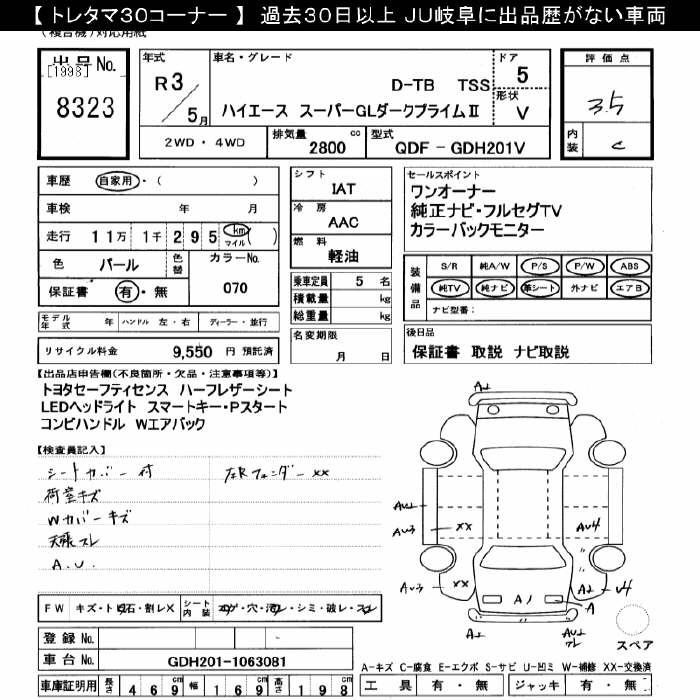 【 トレタマ30コーナー 】 過去30日以上 JU岐阜に出品歴がない車両
(複合機)対応用紙
出品No.
[1998]
8323
年式
R 3 / 5月
車名・グレード
D-TB TSS
ハイエース スーパーGLダークプライムⅡ
ドア
5
形状
V
2WD・4WD
排気量
2800 cc
型式
QDF - GDH201V
評価点
3.5
内装
C
車歴 自家用・( )
車検 年 月
走行 11万 1千 295 km マイル ( )
色 パール 色替 カラーNo.
保証書 有・無 070
モデル年式 年 ハンドル 左・右 ディーラー・並行
リサイクル料金 9,550 円 預託済
シフト
IAT
冷房
AAC
燃料
軽油
乗車定員 5 名
積載量 kg
総重量 kg
名変期限
月 日
セールスポイント
ワンオーナー
純正ナビ・フルセグTV
カラーバックモニター
装備品
S/R 純A/W P/S P/W ABS
純TV 純ナビ 革シート 外ナビ エアB
ナビ型番:
後日品
保証書 取説 ナビ取説
【出品店申告欄(不良箇所・欠品・注意事項等)】
トヨタセーフティセンス ハーフレザーシート
LEDヘッドライト スマートキー・Pスタート
コンビハンドル Wエアバック
【検査員記入】
シートカバー付 左Rフェンダー××
荷室キズ
Wカバーキズ
天張スレ
A.U.
FW キズ・トビ石・割レX シート内装 コゲ・穴・汚レ・シミ・破レ・スレ
登録No.
車台No. GDH201-1063081
車庫証明用 長さ 469 cm 幅 169 cm 高さ 198 cm
A2
AU2
AU3
××
AU4
AU3
××
A1
A2
U4
A
AU2
AU2
スレ
スペア
A-キズ C-腐食 E-エクボ S-サビ U-凹ミ W-補修 XX-交換済
工具 有・無 ジャッキ 有・無